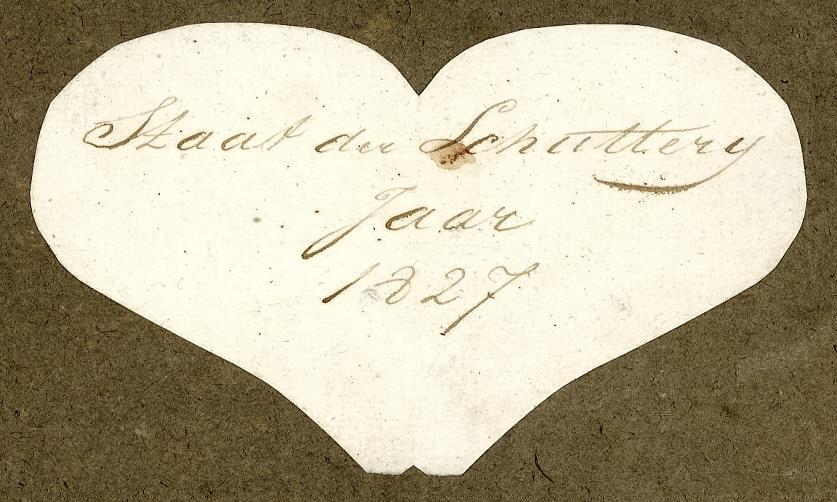 Staat der Schuttery
Jaar
1827